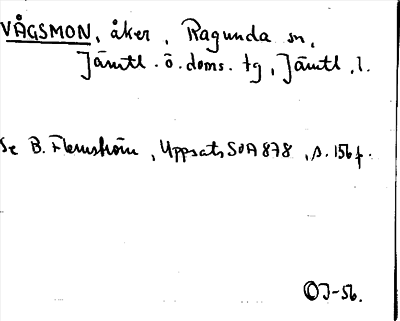 VÅGSMON, åker, Ragunda sn,
Jämtl. ö. doms. tg, Jämtl. l.
Se B. Flemström, Uppsats SOA 878, s. 156 f.
OJ-56.